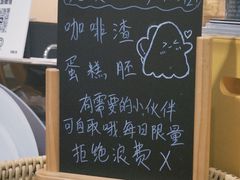 咖啡渣
蛋糕胚
有需要的小伙伴
可自取哦每日限量
拒绝浪费 X